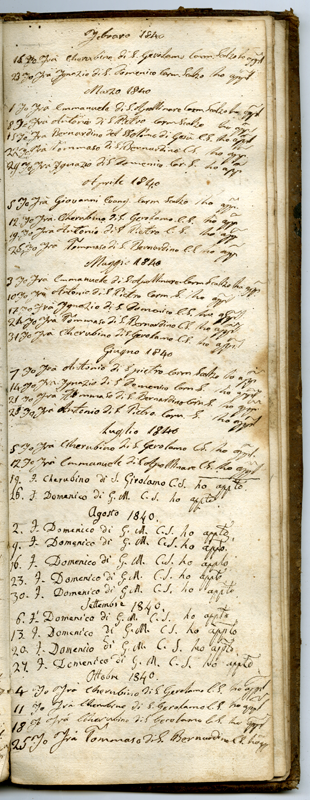 Febraro 1840
16 Io Frà Cherubino di S. Gerolamo Carm. Scalzo ho appl.
23 Io Frà Ignazio di S. Domenico Carm. Scalzo ho appl.
Marzo 1840
1 Io Frà Emmanuele di S. Apollinare Carm. Scalzo ho appl.
8 Io Frà Antonio di S. Pietro Carm. Scalzo ho app.
15 Io Frà Bernardino del Bambino di Gesù C.S. ho app.
22 Io Frà Tommaso di S. Bernardino C.S. ho app.
29 Io Frà Ignazio di S. Domenico Car. S. ho app.
Aprile 1840
5 Io Frà Giovanni Evang. Carm. Scalzo ho app.
12 Io Frà Cherubino di S. Gerolamo C.S. ho app.
19 Io Frà Antonio di S. Pietro C.S. ho app.
26 Io Frà Tommaso di S. Bernardino C.S. ho app.
Maggio 1840
3 Io Frà Emmanuele di S. Apollinare Carm. Scalzo ho app.
10 Io Frà Antonio di S. Pietro Carm. S. ho app.
17 Io Frà Ignazio di S. Domenico C.S. ho app.
24 Io Frà Tommaso di S. Bernardino C.S. ho app.
31 Io Frà Cherubino di S. Gerolamo C.S. ho appl.
Giugno 1840
7 Io Frà Antonio di S. Pietro Carm. Scalzo ho app.
14 Io Frà Ignazio di S. Domenico Carm. S. ho app.
21 Io Frà Tommaso di S. Bernardino Carm. S. ho app.
28 Io Frà Antonio di S. Pietro Carm. S. ho app.
Luglio 1840
5 Io Frà Cherubino di S. Gerolamo C.S. ho appl.
12 Io Frà Emmanuele di S. Apollinare C.S. ho appl.
19. F. Cherubino di S. Girolamo C.S. ho appto.
26. F. Domenico di G. M. C.S. ho appto.
Agosto 1840.
2. F. Domenico di G. M. C.S. ho appto.
9. F. Domenico di G. M. C.S. ho appto.
16. F. Domenico di G. M. C.S. ho appto.
23. F. Domenico di G. M. C.S. ho appto.
30. F. Domenico di G. M. C.S. ho appto.
Settembre 1840.
6. F. Domenico di G. M. C.S. ho appto.
13. F. Domenico di G. M. C.S. ho appto.
20. F. Domenico di G. M. C.S. ho appto.
27. F. Domenico di G. M. C.S. ho appto.
Ottobre 1840.
4 Io Frà Cherubino di S. Gerolamo C.S. ho appl.
11 Io Frà Cherubino di S. Gerolamo C.S. ho appl.
18 Io Frà Cherubino di S. Gerolamo C.S. ho appl.
25 Io Frà Tommaso di S. Bernardino C.S. ho app.